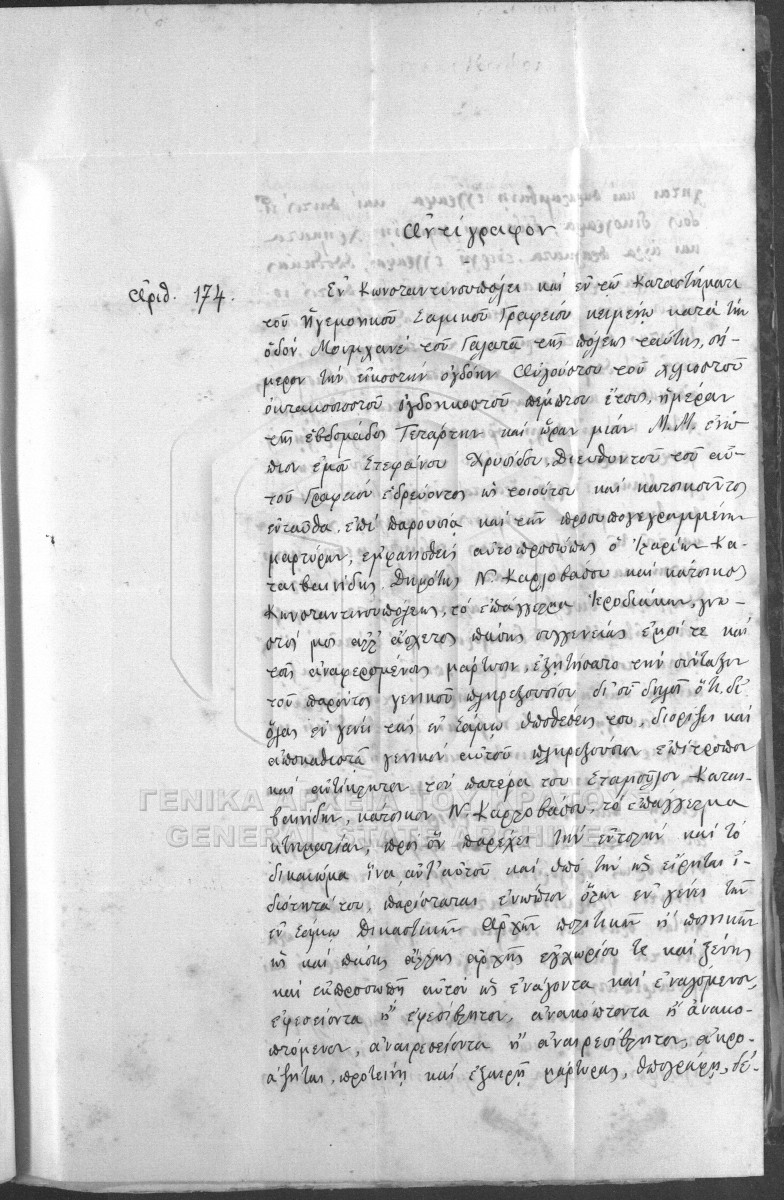 Ἀντίγραφον
Ἀριθ. 174.
Ἐν Κωνσταντινουπόλει καὶ ἐν τῷ Καταστήματι
τοῦ Ἡγεμονικοῦ Σαμιακοῦ Γραφείου κειμένῳ κατὰ τὴν
ὁδόν Μουμχανὲ τοῦ Γαλατᾶ τῆς πόλεως ταύτης, σή-
μερον τὴν εἰκοστὴν ὀγδόην Αὐγούστου τοῦ χιλιοστοῦ
ὀκτακοσιοστοῦ ὀγδοηκοστοῦ πέμπτου ἔτους, ἡμέραν
τῆς ἑβδομάδος Τετάρτην καὶ ὥραν μιάν Μ.Μ. ἐνώ-
πιον ἐμοῦ Στεφάνου Χρυσίδου, Διευθυντοῦ τοῦ αὐ-
τοῦ Γραφείου ἑδρεύοντος ὡς τοιούτου καὶ κατοικοῦντος
ἐνταῦθα, ἐπὶ παρουσίᾳ καὶ τῶν προσυπογεγραμμένων
μαρτύρων, ἐμφανισθεὶς αὐτοπροσώπως ὁ Ἱλαρίων Κα-
ταιβαινίδης Δημότης Ν. Καρλοβάσου καὶ κάτοικος
Κωνσταντινουπόλεως, τὸ ἐπάγγελμα Ἱεροδιάκων, γνω-
στός μοι ἀλλ' ἄσχετος πάσης συγγενείας ἐμοί τε καὶ
τοῖς ἀναφερομένοις μάρτυσιν, ἐξῃτήσατο τὴν σύνταξιν
τοῦ παρόντος γενικοῦ πληρεξουσίου δι' οὗ δηλοῖ ὅτι δι'
ὅλας ἐν γένει τὰς ἐν Σάμῳ ὑποθέσεις του, διορίζει καὶ
ἀποκαθιστᾷ γενικόν αὐτοῦ πληρεξούσιον ἐπίτροπον
καὶ ἀντίκλητον τὸν πατέρα του Σταμοῦλον Καται-
βαινίδην, κάτοικον Ν. Καρλοβάσου, τὸ ἐπάγγελμα
κτηματίαν, πρὸς ὃν παρέχει τὴν ἐντολὴν καὶ τὸ
δικαίωμα ἵνα ἀντ' αὐτοῦ καὶ ὑπὸ τὴν ὡς εἴρηται ἰ-
διότητά του, παρίσταται ἐνώπιον ὅλων ἐν γένει τῶν
ἐν Σάμῳ Δικαστικῶν Ἀρχῶν πολιτικῶν ἢ ποινικῶν
ὡς καὶ πάσης ἄλλης ἀρχῆς ἐγχωρίου τε καὶ ξένης
καὶ ἐκπροσωπῇ αὐτὸν ὡς ἐνάγοντα καὶ ἐναγόμενον,
ἐφεσείοντα ἢ ἐφεσίβλητον, ἀνακόπτοντα ἢ ἀνακο-
πτόμενον, ἀναιρεσείοντα ἢ ἀναιρεσίβλητον,
προτείνῃ καὶ ἐξαιρῇ μάρτυρας, ὑπογράφῃ, δέ-
ΓΕΝΙΚΑ ΑΡΧΕΙΑ ΤΟΥ ΚΡΑΤΟΥΣ
GENERAL STATE ARCHIVES